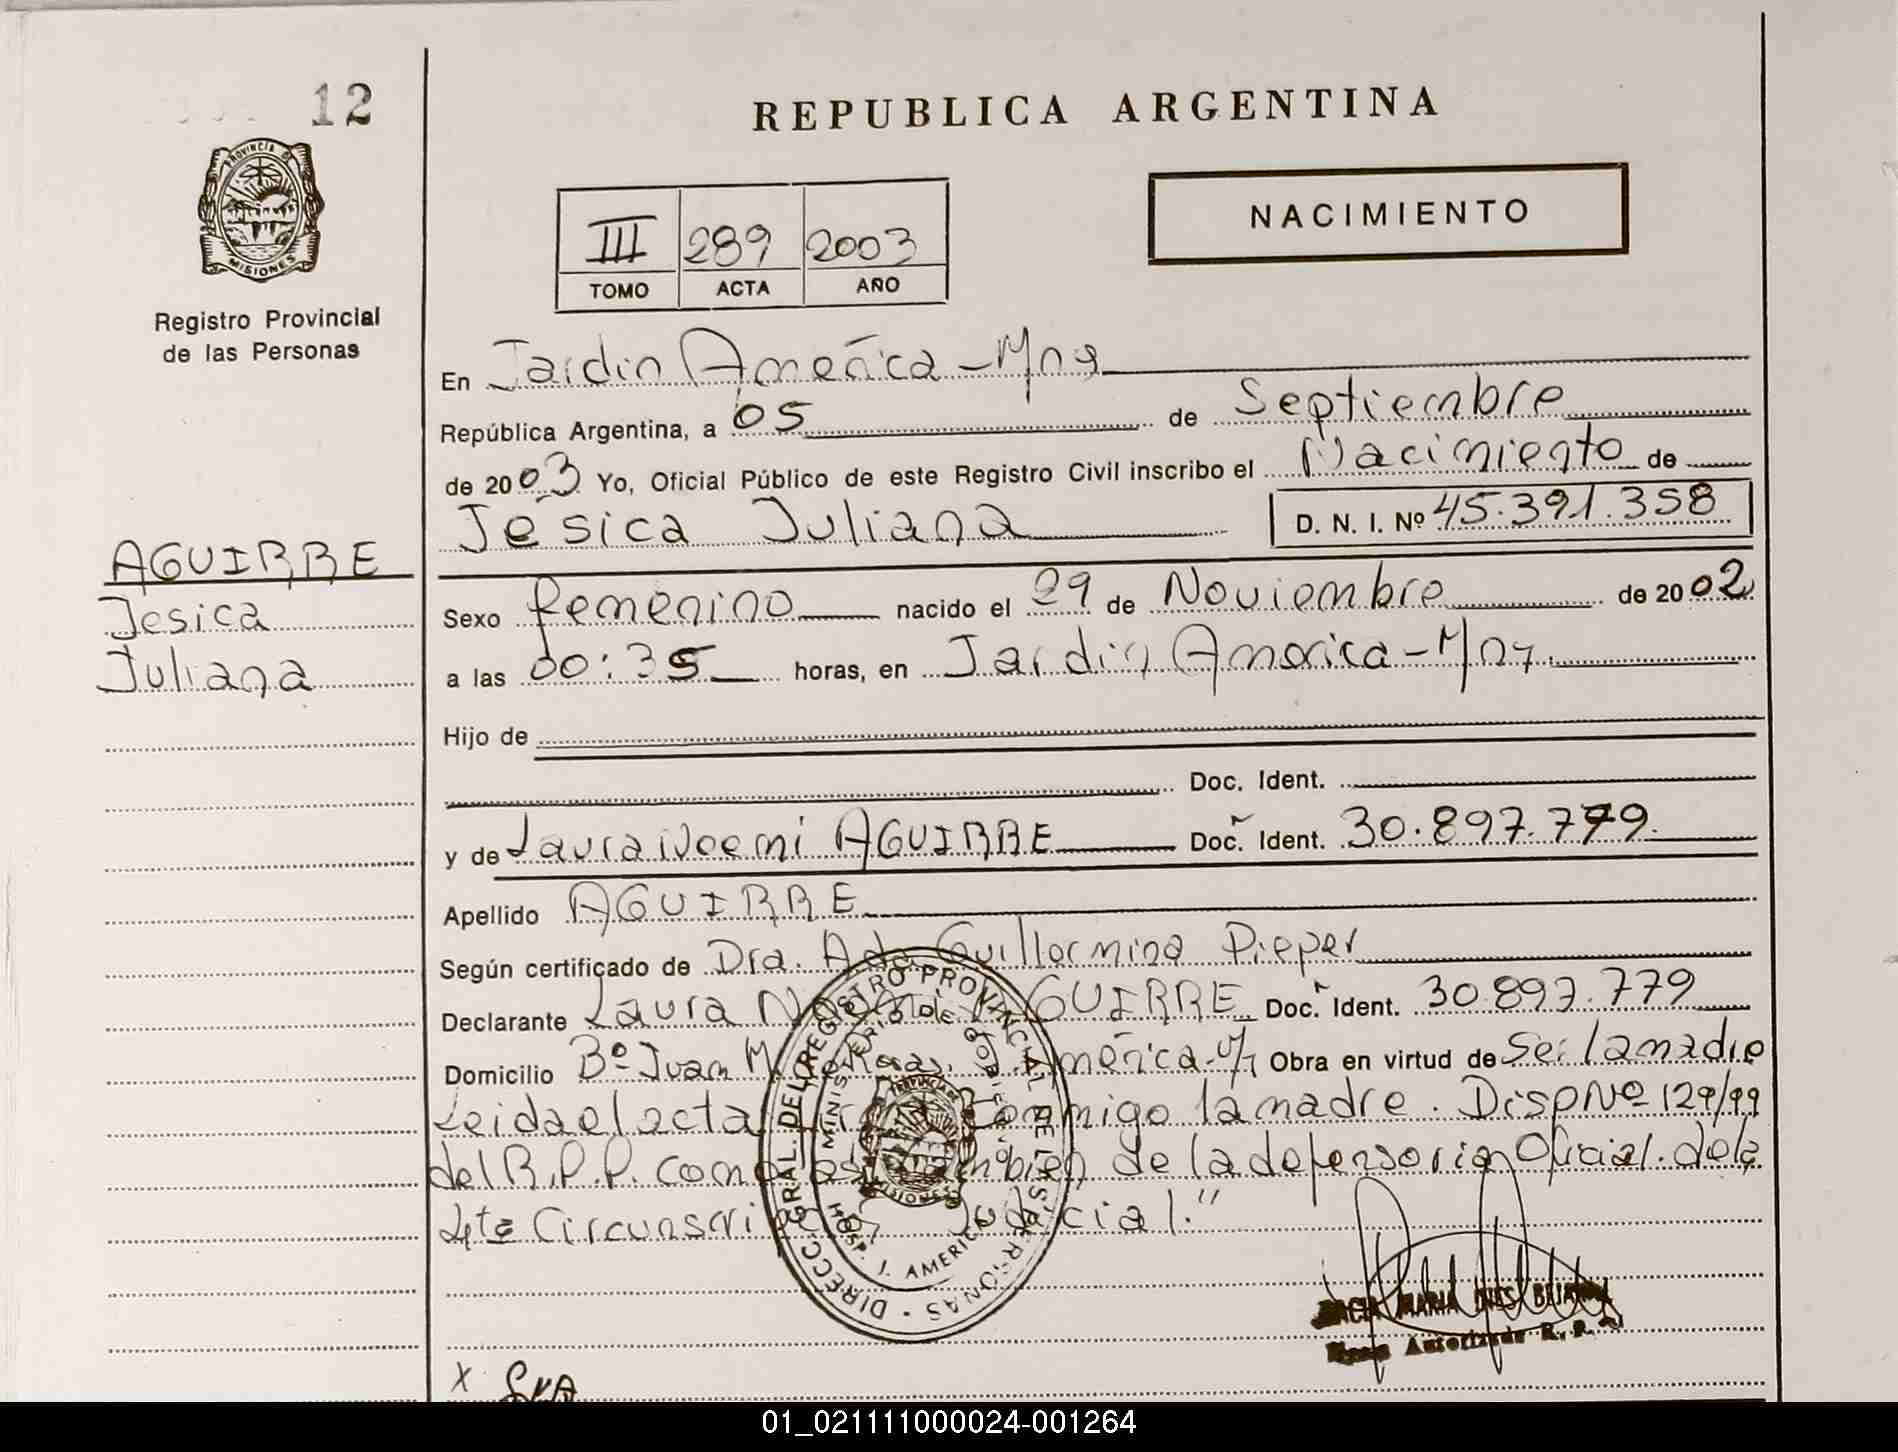 12
REPUBLICA ARGENTINA
PROVINCIA DE
MISIONES
NACIMIENTO
III 289 2003
TOMO ACTA AÑO
Registro Provincial
de las Personas
En Jardin América - Mns
República Argentina, a 05 de Septiembre
de 2003 Yo, Oficial Público de este Registro Civil inscribo el Nacimiento de
Jesica Juliana D. N. I. Nº 45.391.358
AGUIRRE
Jesica
Juliana
Sexo femenino nacido el 29 de Noviembre de 2002
a las 00:35 horas, en Jardin America - Mns
Hijo de
Doc. Ident.
y de Laura Noemi AGUIRRE Doc. Ident. 30.897.779
Apellido AGUIRRE
Según certificado de Dra. Ada Guillermina Pieper
Declarante Laura Noemi AGUIRRE Doc. Ident. 30.897.779
Domicilio Bº Juan M. de Rosas, J. América Obra en virtud de Ser la madre
Leida el acta firma conmigo la madre. Disp Nº 129/99
del R.P.P. como asi tambien de la defensoria Oficial de la
4ta Circunscripción Judicial."
DIRECC. GRAL. DEL REGISTRO PROVINCIAL DE LAS PERSONAS
MINISTERIO DE GOBIERNO
HOSP. J. AMERICA
PROVINCIA DE
MISIONES
MARIA INES
Firma Autorizada R. P. P.
X
01_021111000024-001264